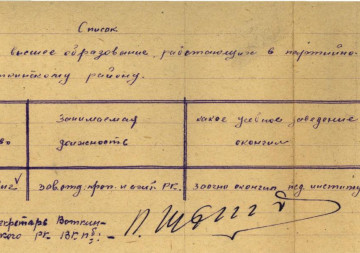 Список
высшее образование, работающих в партийно-
откинскому району.
Занимаемая какое учебное заведение
во должность окончил
зав. отд. проп. и агит. РК. заочно окончил пед. институ
екретарь Воткин-
ского РК ВКП/б/: -